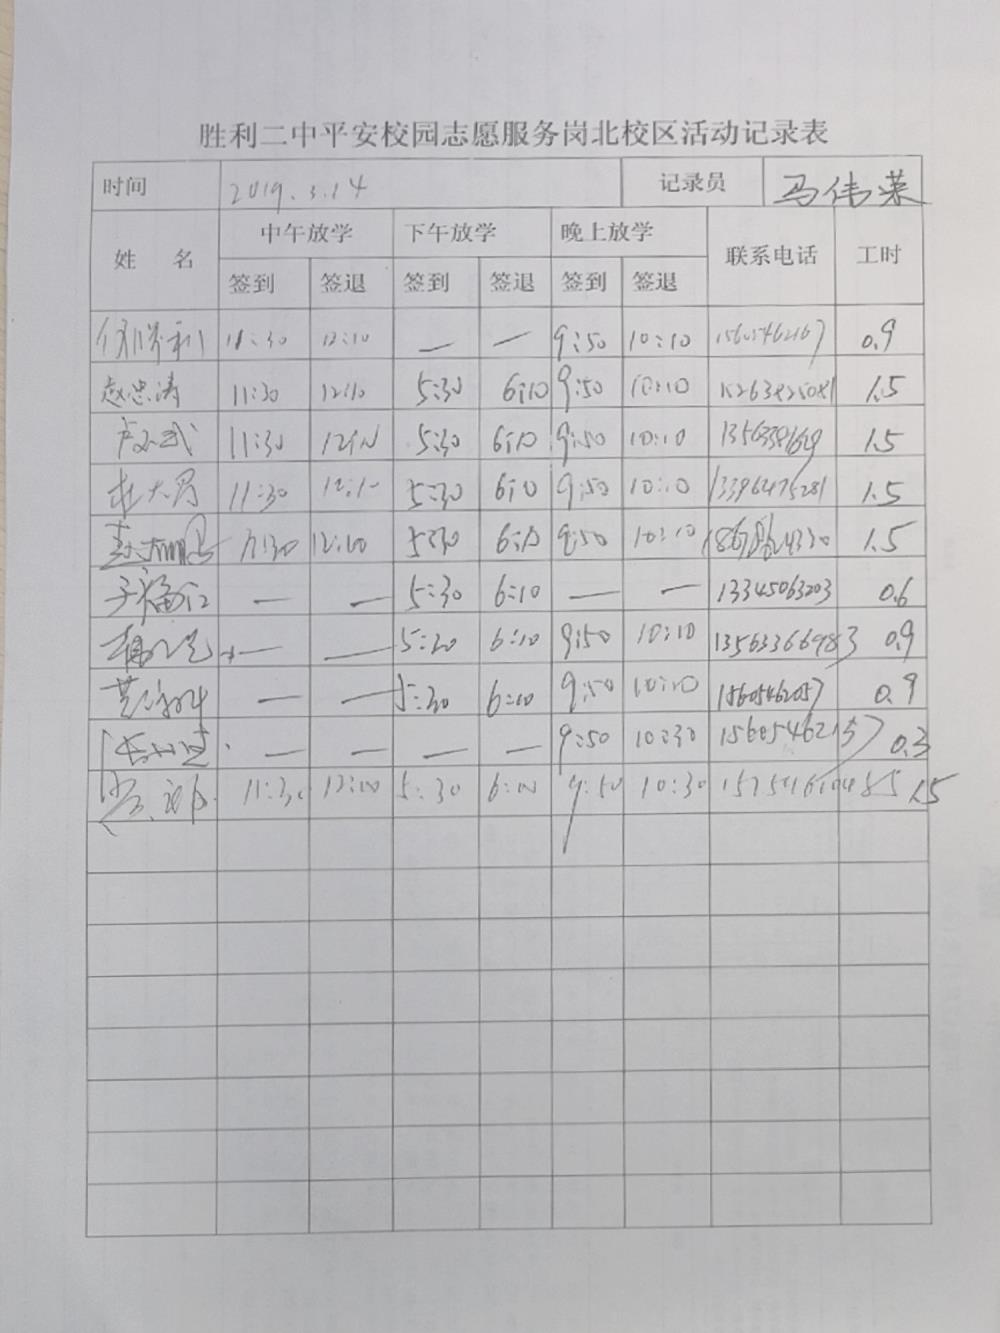 胜利二中平安校园志愿服务岗北校区活动记录表
时间 2019.3.14 记录员 马伟荣
姓 名 中午放学 下午放学 晚上放学 联系电话 工时
签到 签退 签到 签退 签到 签退
胜利 11:30 12:10 — — 9:50 10:10 15605462167 0.9
赵忠涛 11:30 12:10 5:30 6:10 9:50 10:10 15263825081 1.5
11:30 5:30 6:10 9:50 10:10 1.5
杜大勇 11:30 12:10 5:30 6:10 9:50 10:10 13396475281 1.5
11:30 12:10 5:30 6:10 9:50 10:10 1.5
于福江 — — 5:30 6:10 — — 13345063203 0.6
— — 5:30 6:10 9:50 10:10 13563366983 0.9
— — 5:30 6:10 9:50 10:10 15605462057 0.9
— — — — 9:50 10:30 15605462157 0.3
11:30 12:10 5:30 6:10 9:50 10:30 1.5